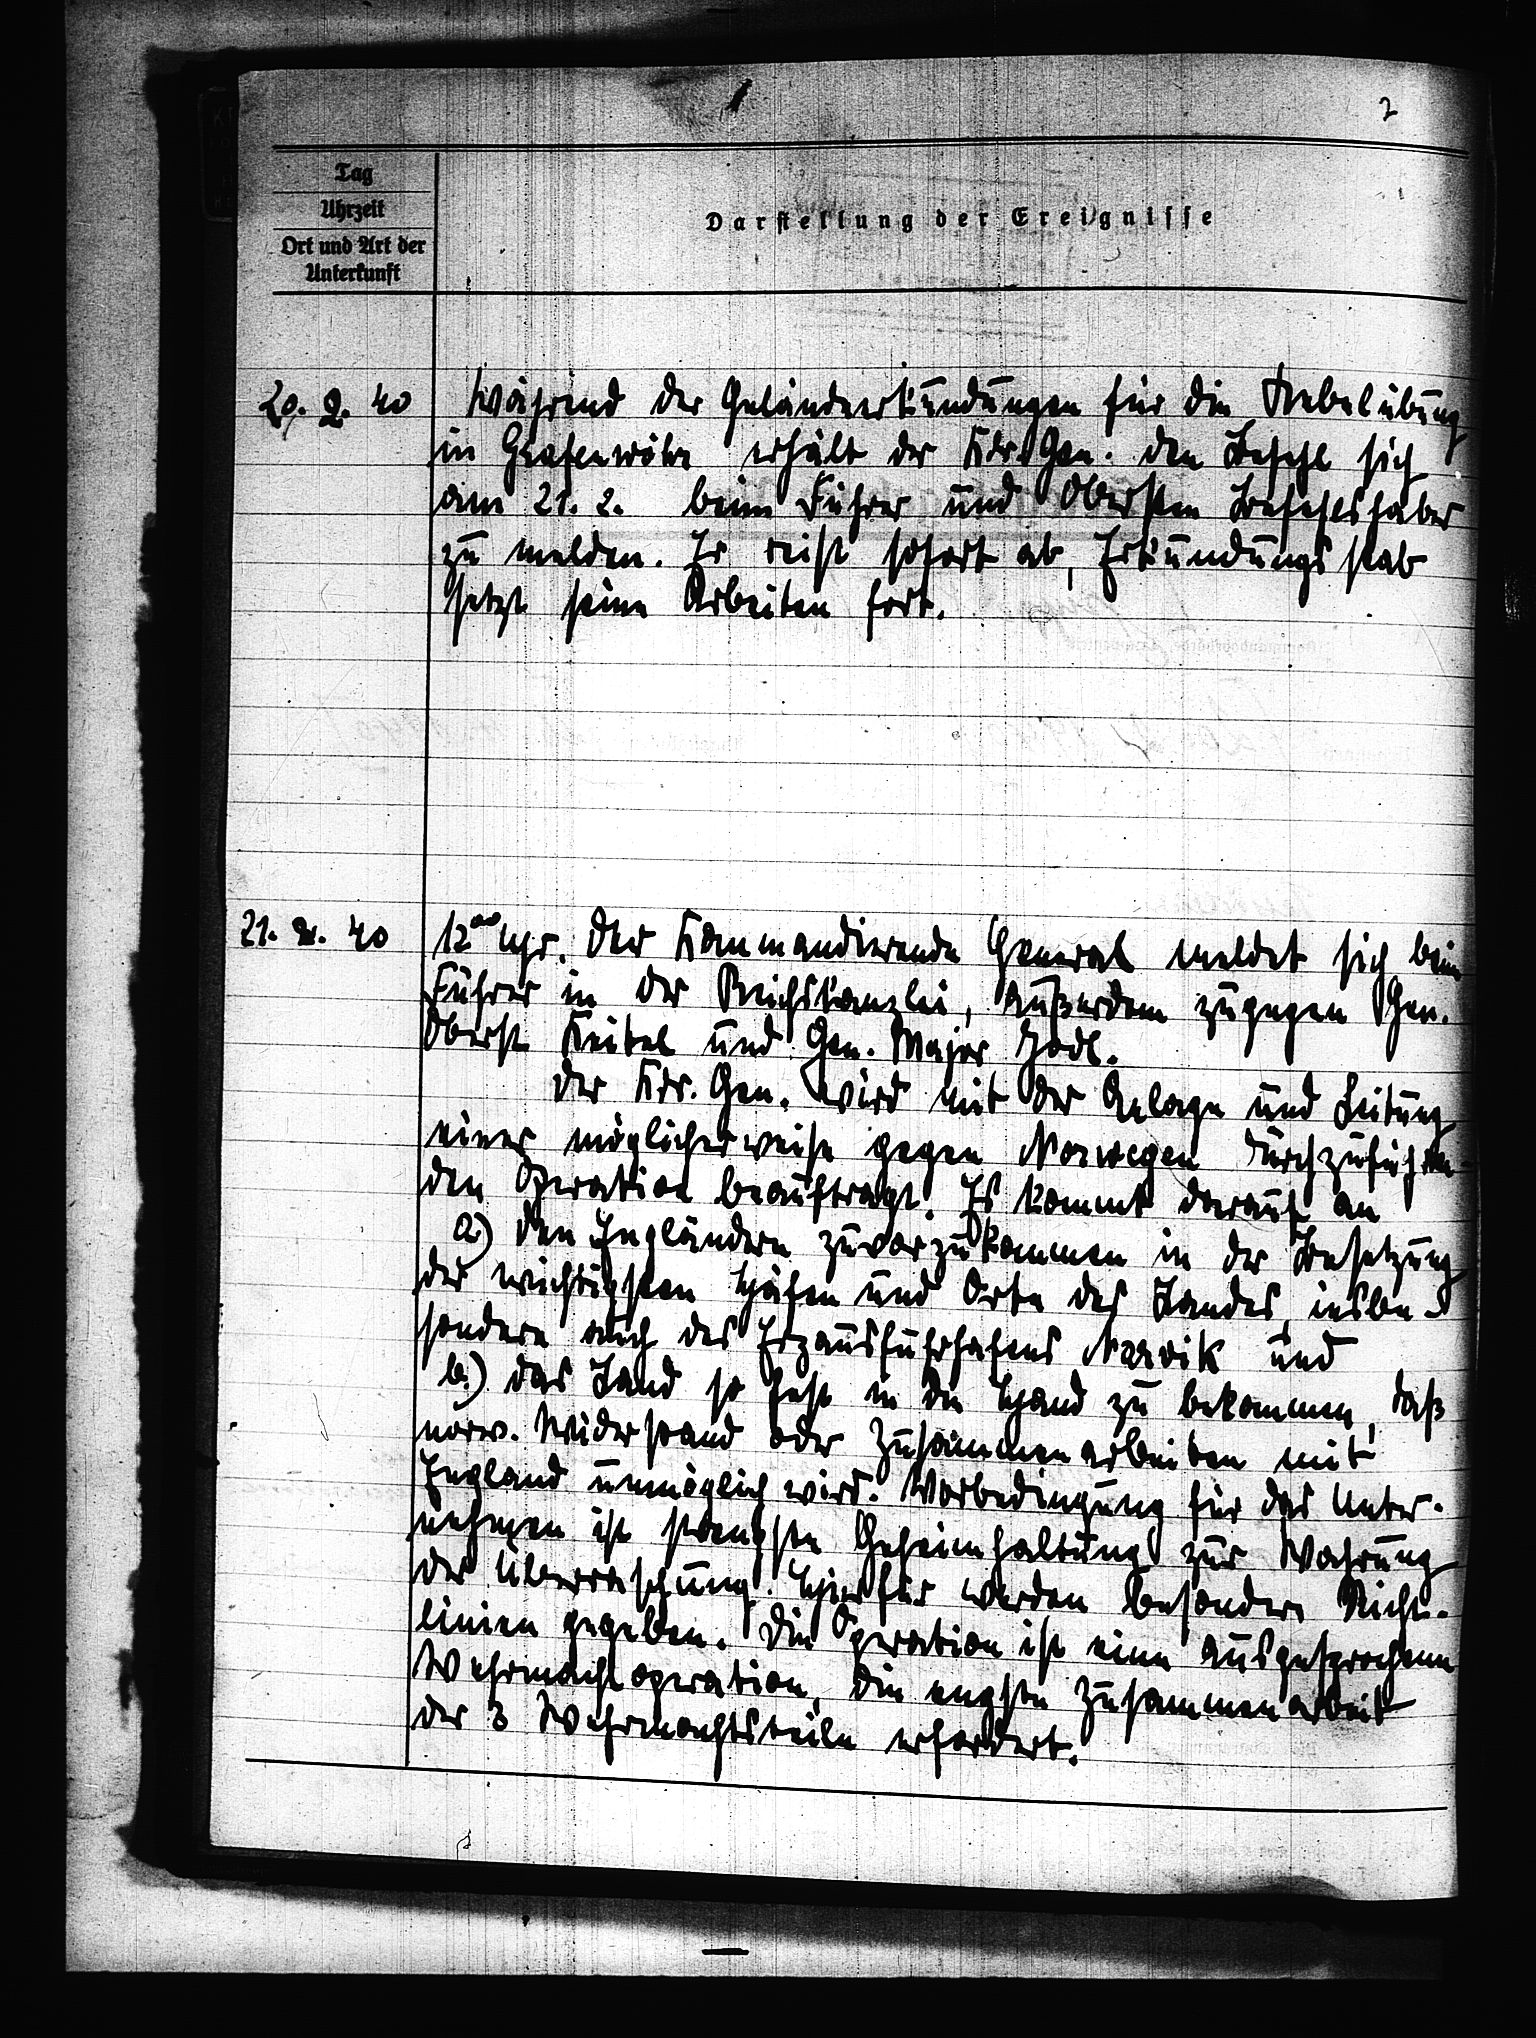 2
Tag
Uhrzeit
Ort und Art der
Unterkunft
Darstellung der Ereignisse
20. 2. 40
Während der Geländeerkundungen für die Nebelübung
in Grafenwöhr erhält der Kdr. Gen. den Befehl sich
am 21. 2. beim Führer und Obersten Befehlshaber
zu melden. Er reist sofort ab, Erkundungsstab
setzt seine Arbeiten fort.
21. 2. 40
12⁰⁰ Uhr. Der Kommandierende General meldet sich beim
Führer in der Reichskanzlei, außerdem zugegen Gen.
Oberst Keitel und Gen. Major Jodl.
Der Kdr. Gen. wird mit der Anlage und Leitung
einer möglicherweise gegen Norwegen durchzuführen-
den Operation beauftragt. Es kommt darauf an
a) den Engländern zuvorzukommen in der Besetzung
der wichtigsten Häfen und Orte des Landes, insbe-
sondere auch des Erzausfuhrhafens Narvik und
b.) das Land so fest in die Hand zu bekommen, daß
norw. Widerstand oder Zusammenarbeiten mit
England unmöglich wird. Vorbedingung für das Unter-
nehmen ist strengste Geheimhaltung zur Wahrung
der Überraschung. Hierfür werden besondere Richt-
linien gegeben. Die Operation ist eine ausgesprochene
Wehrmachtoperation, die engste Zusammenarbeit
der 3 Wehrmachtsteile erfordert.